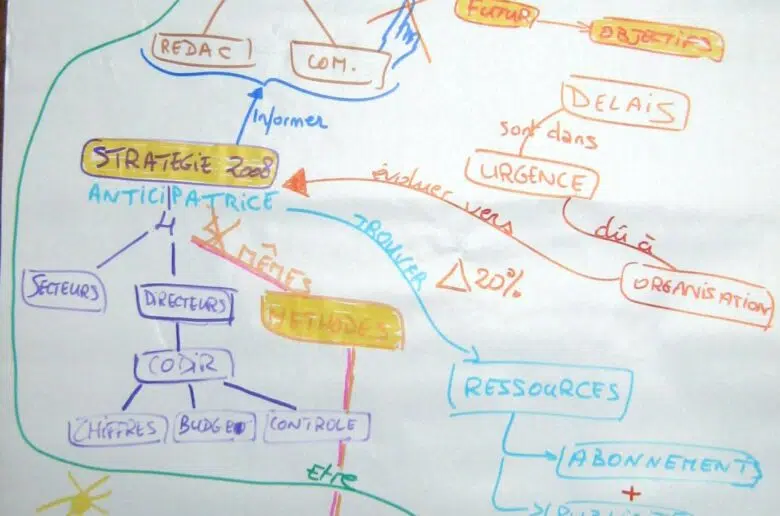 FUTUR
OBJECTIFS
REDAC
COM.
DELAIS
Informer
sont dans
STRATEGIE 2008
URGENCE
évoluer vers
ANTICIPATRICE
dû à
4
TROUVER
MÊMES
Δ 20%
ORGANISATION
SECTEURS
DIRECTEURS
METHODES
CODIR
RESSOURCES
CHIFFRES
BUDGET
CONTROLE
ABONNEMENT
Etre
+